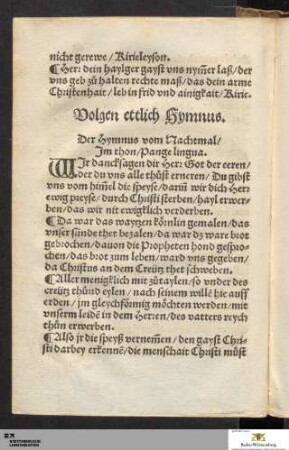 nicht gerewe / Kirieleyson.
¶ Her: dein haylger gayst vns nym̄er laß / der
vns geb zů halten rechte maß / das dein arme
Christenhait / leb in frid vnd ainigkait / Kirie.
Volgen ettlich Hymnus.
Der Hymnus vom Nachtmal /
Im thon / Pange lingua.
WIr dancksagen dir Her: Got der eeren /
der du vns alle thůst erneren / Du gibst
vns vom him̄el die speyse / darum̄ wir dich Herr
ewig preyse / durch Christi sterben / hayl erwer-
ben / das wir nit ewigklich verderben.
¶ Da war das waytzen kőrnlin gemalen / das vn-
ser sünde thet bezalen / da war dz warc brot
gebrochen / dauon die Propheten hond gespro-
chen / das brot zum leben / ward vns gegeben /
da Christus an dem Creütz thet schweben.
¶ Aller menigklich mit zůtaylen / so vnder des
creütz thůnd eylen / nach seinem wille hie auff
erden / jm gleychfőrmig mőchten werden / mit
vnserm leide in dem Herren / des vatters reych
thůn erwerben.
¶ Also jr die speyß vernemēn / den gayst Chri-
sti darbey erkennē / die menschait Christi můst
WÜRTTEMBERGISCHE
LANDESBIBLIOTHEK
Baden-Württemberg